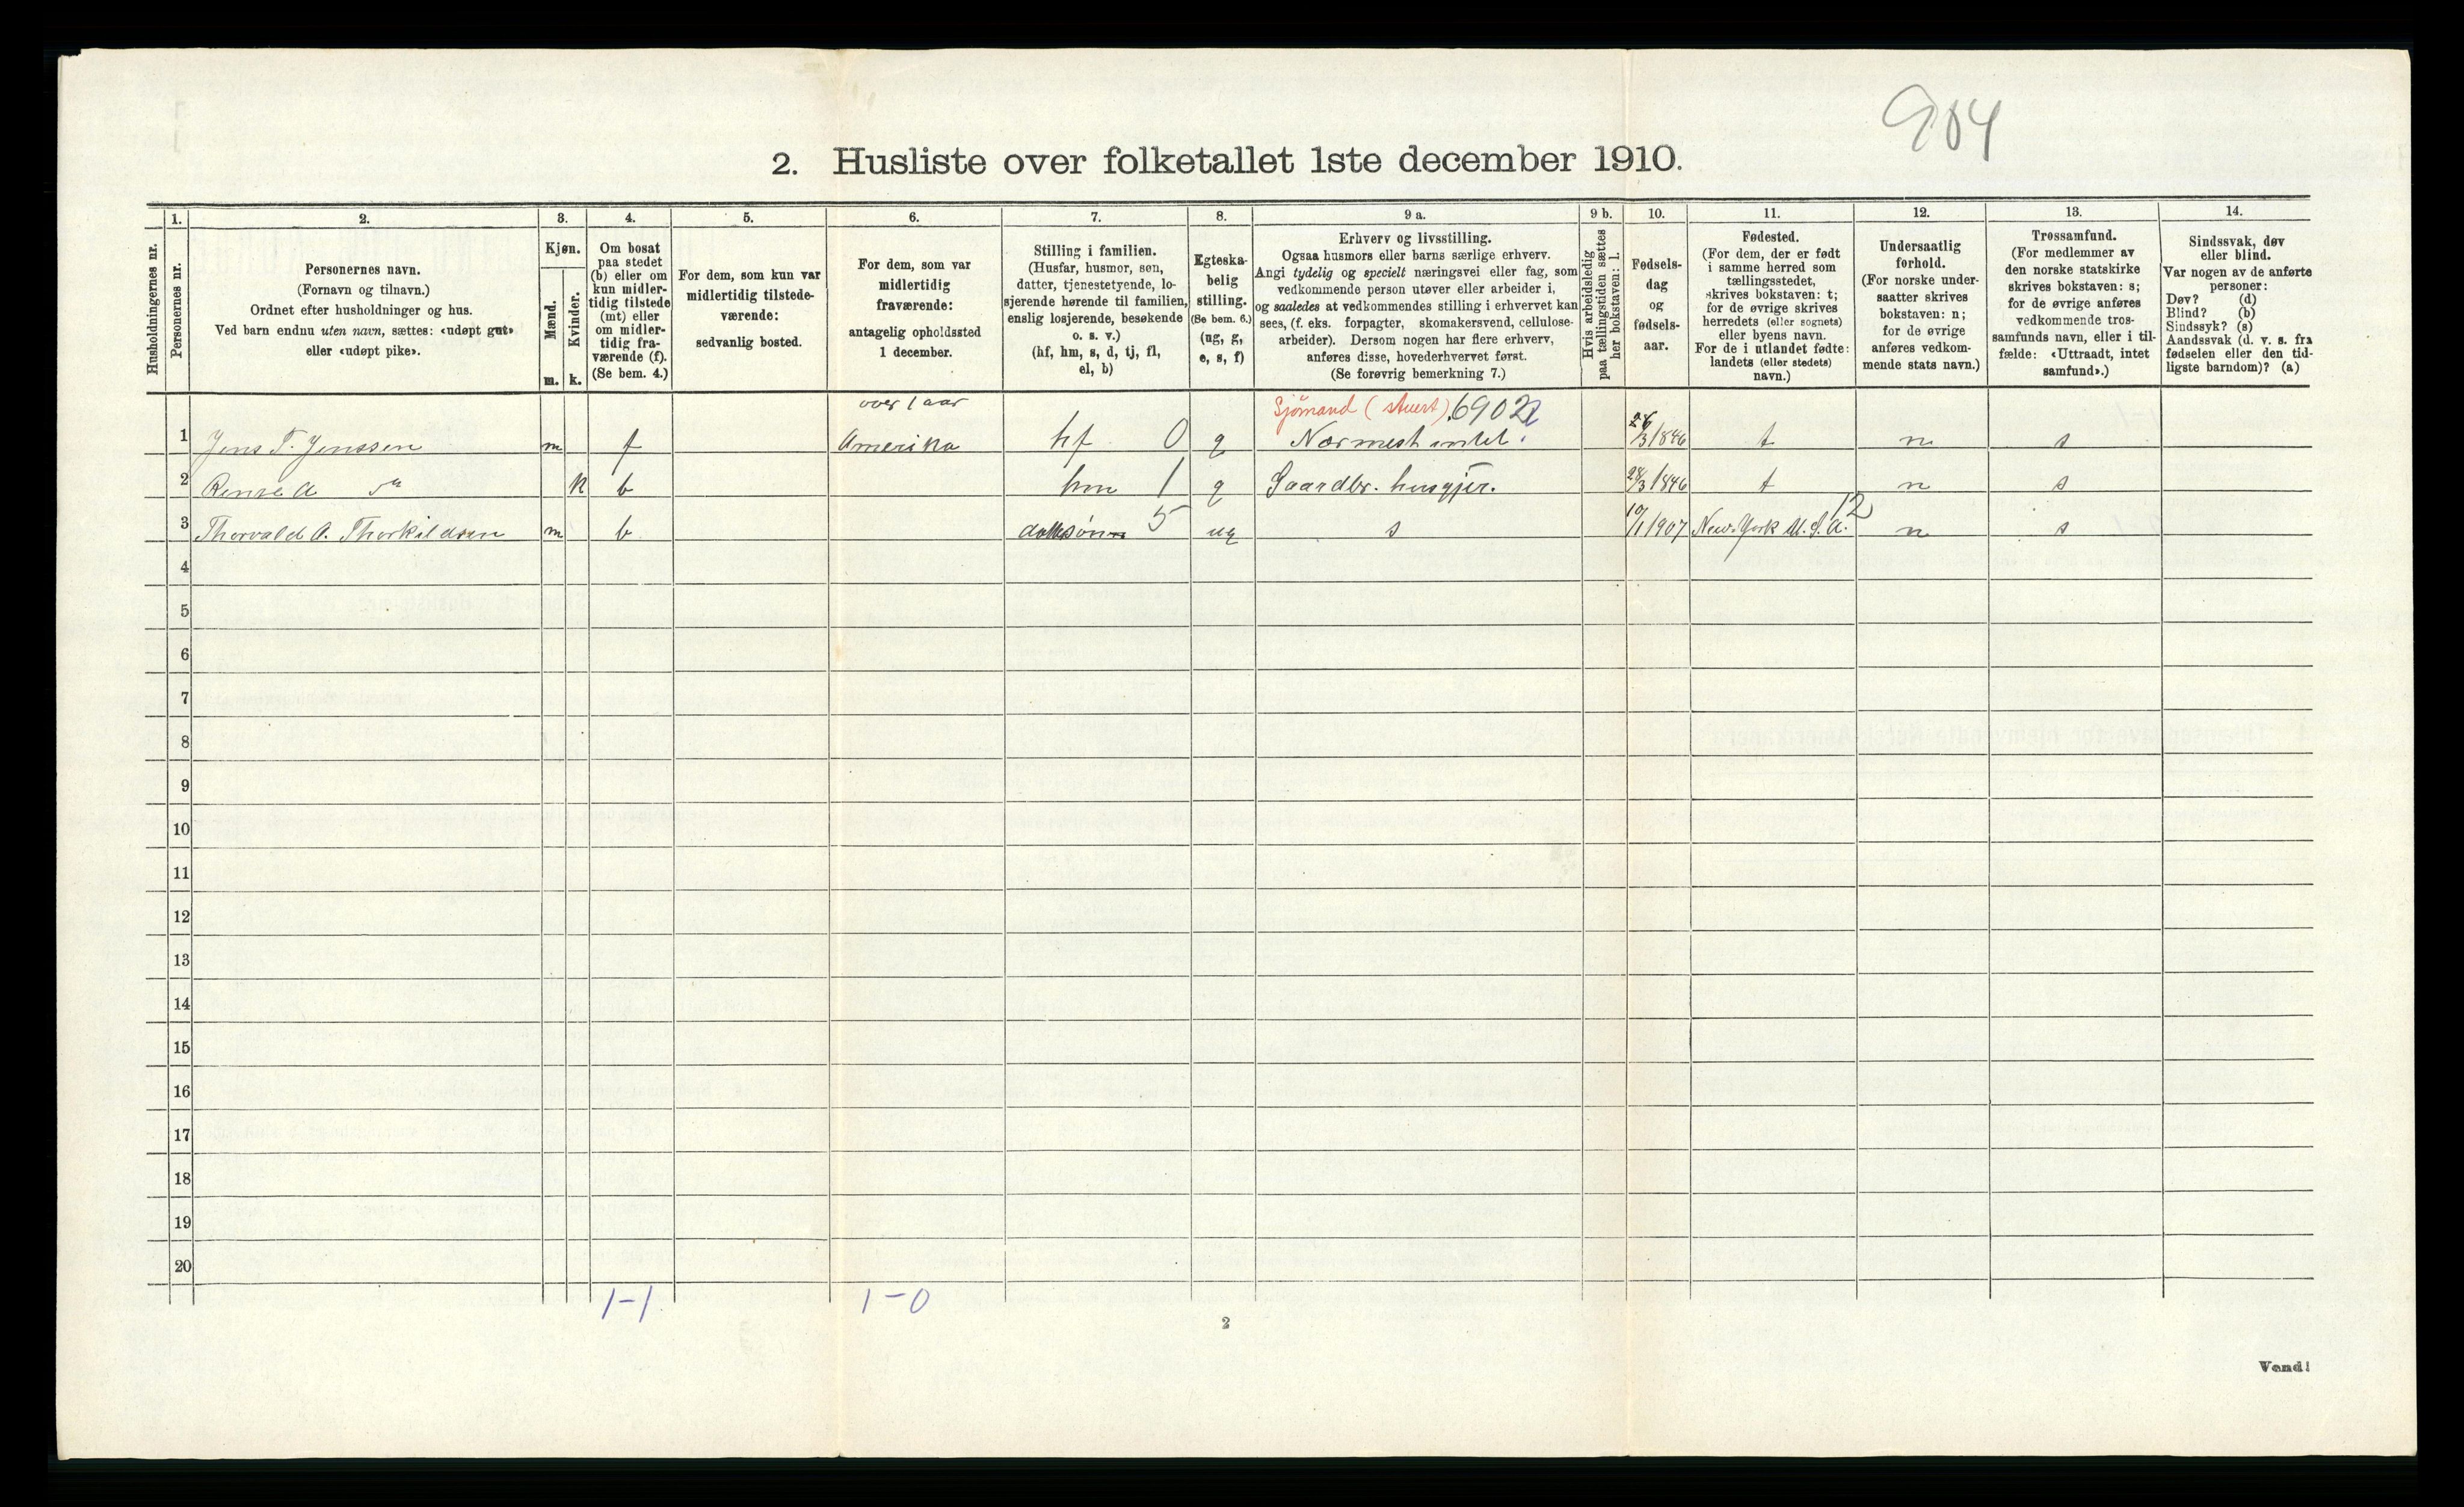 904
2. Husliste over folketallet 1ste december 1910.
1. 2. 3. 4. 5. 6. 7. 8. 9 a. 9 b. 10. 11. 12. 13. 14.
Husholdningernes nr.
Personernes nr.
Personernes navn.
(Fornavn og tilnavn.)
Ordnet efter husholdninger og hus.
Ved barn endnu uten navn, sættes: «udøpt gut»
eller «udøpt pike».
Kjøn.
Mænd.
m.
Kvinder.
k.
Om bosat
paa stedet
(b) eller om
kun midler-
tidig tilstede
(mt) eller
om midler-
tidig fra-
værende (f).
(Se bem. 4.)
For dem, som kun var
midlertidig tilstede-
værende:
sedvanlig bosted.
For dem, som var
midlertidig
fraværende:
antagelig opholdssted
1 december.
Stilling i familien.
(Husfar, husmor, søn,
datter, tjenestetyende, lo-
sjerende hørende til familien,
enslig losjerende, besøkende
o. s. v.)
(hf, hm, s, d, tj, fl,
el, b)
Egteska-
belig
stilling.
(Se bem. 6.)
(ug, g,
e, s, f)
Erhverv og livsstilling.
Ogsaa husmors eller barns særlige erhverv.
Angi tydelig og specielt næringsvei eller fag, som
vedkommende person utøver eller arbeider i,
og saaledes at vedkommendes stilling i erhvervet kan
sees, (f. eks. forpagter, skomakersvend, cellulose-
arbeider). Dersom nogen har flere erhverv,
anføres disse, hovederhvervet først.
(Se forøvrig bemerkning 7.)
Hvis arbeidsledig
paa tællingstiden sættes
her bokstaven: l.
Fødsels-
dag
og
fødsels-
aar.
Fødested.
(For dem, der er født
i samme herred som
tællingsstedet,
skrives bokstaven: t;
for de øvrige skrives
herredets (eller sognets)
eller byens navn.
For de i utlandet fødte:
landets (eller stedets)
navn.)
Undersaatlig
forhold.
(For norske under-
saatter skrives
bokstaven: n;
for de øvrige
anføres vedkom-
mende stats navn.)
Trossamfund.
(For medlemmer av
den norske statskirke
skrives bokstaven: s;
for de øvrige anføres
vedkommende tros-
samfunds navn, eller i til-
fælde: «Uttraadt, intet
samfund».)
Sindssvak, døv
eller blind.
Var nogen av de anførte
personer:
Døv? (d)
Blind? (b)
Sindssyk? (s)
Aandssvak (d. v. s. fra
fødselen eller den tid-
ligste barndom)? (a)
over 1 aar Sjømand (stuert) 6902
1 Jens T. Jenssen m f Amerika hf 0 g Nærmest intet. 26/3 1846 t n s
2 A k b hm 1 g Gaardbr. husgjer. 28/3 1846 t n s
3 Thorvald A. Thorkildsen m b dattersøn 5 ug s 10/1 1907 New-York U.S.A. 12 n s
4
5
6
7
8
9
10
11
12
13
14
15
16
17
18
19
20
1-1 1-0
2
Vend!